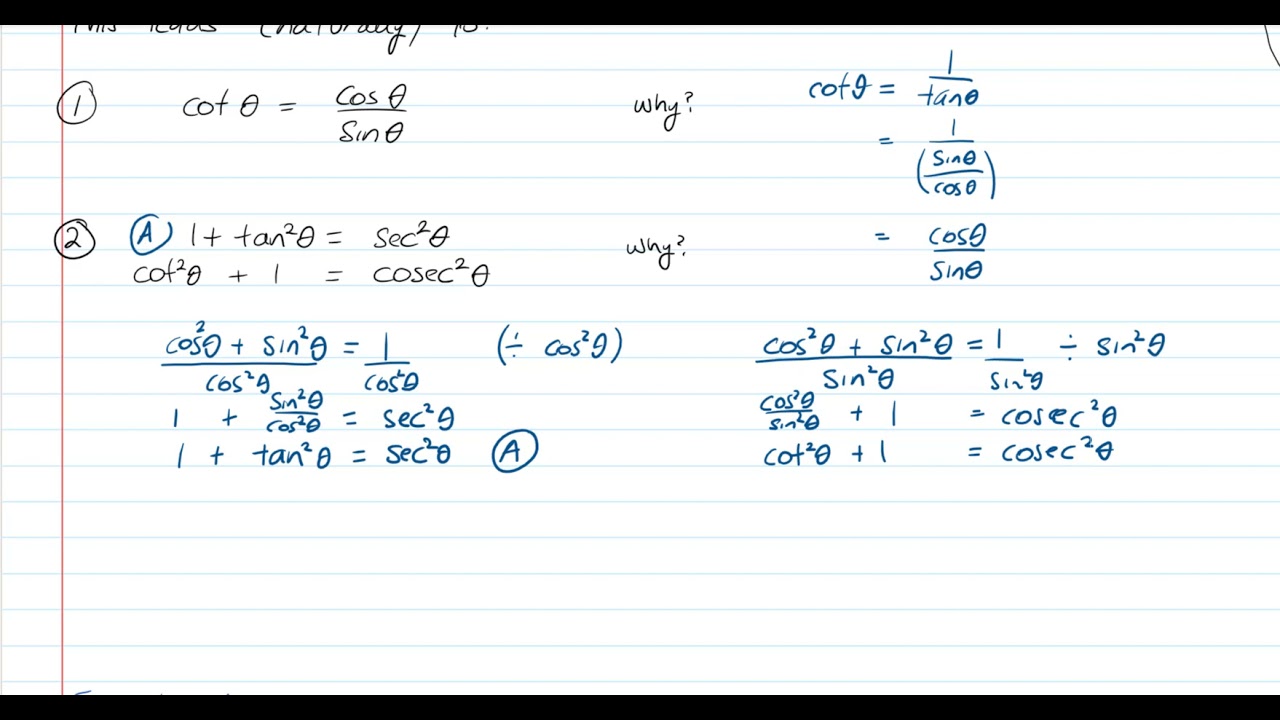 This leads (naturally) to:
① cot θ = cos θ / sin θ why?
cot θ = 1 / tan θ
= 1 / (sin θ / cos θ)
= cos θ / sin θ
② Ⓐ 1 + tan²θ = sec²θ why?
cot²θ + 1 = cosec²θ
(cos²θ + sin²θ) / cos²θ = 1 / cos²θ (÷ cos²θ)
1 + sin²θ / cos²θ = sec²θ
1 + tan²θ = sec²θ Ⓐ
(cos²θ + sin²θ) / sin²θ = 1 / sin²θ ÷ sin²θ
cos²θ / sin²θ + 1 = cosec²θ
cot²θ + 1 = cosec²θ